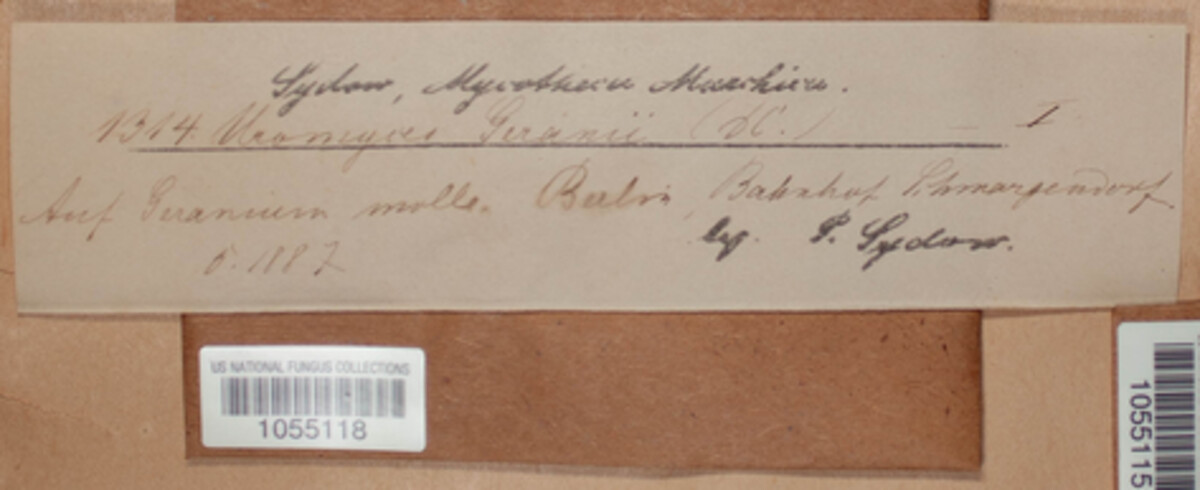 Sydow, Mycotheca Marchica.
1314. Uromyces Geranii (DC.) — I
Auf Geranium molle. Berlin, Bahnhof Schmargendorf.
leg. P. Sydow.
5. 1887
US NATIONAL FUNGUS COLLECTIONS
1055118
1055115